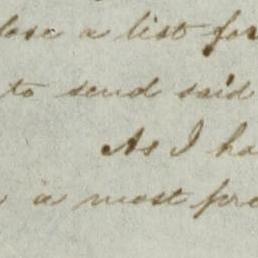 lose a list for
to send said
As I ha
a most pre